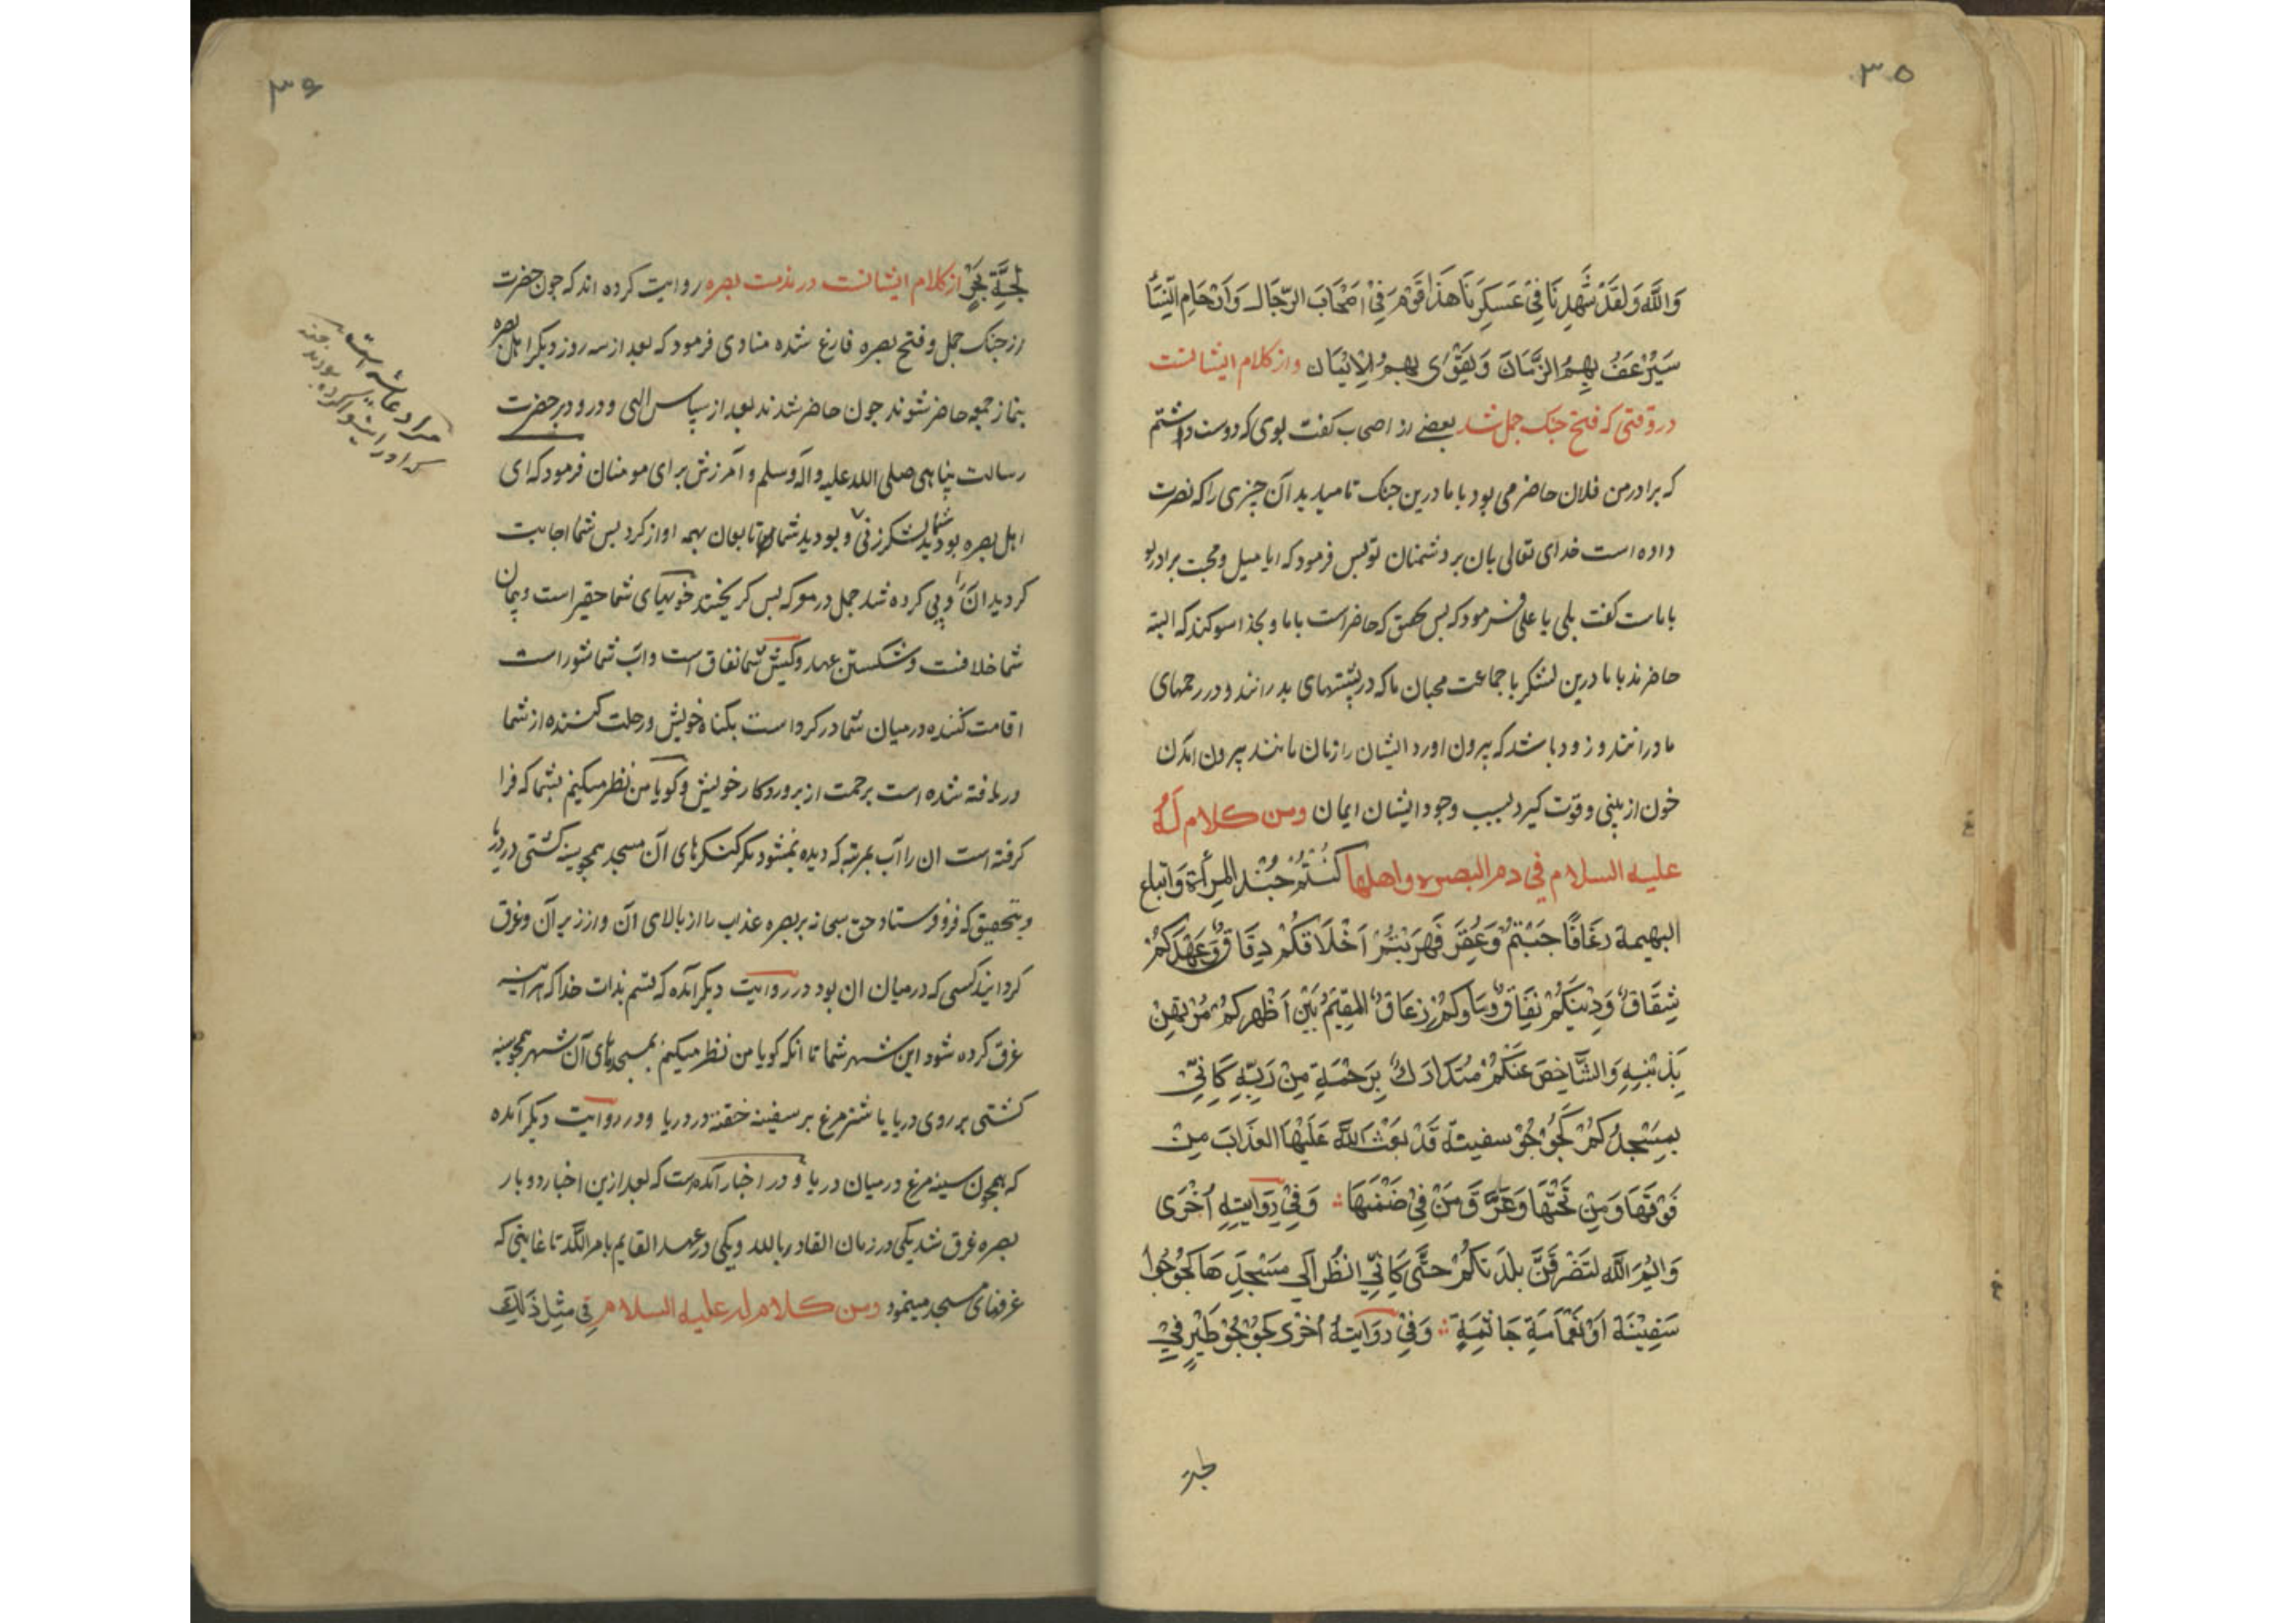 ۳۵
وَاللَّه وَلَقَدْ شَهِدِنَا فِیْ عَسکِرِنَا هَذَا قَوْمَر فِیْ اَصْحَابَ الرّجَال وَاَرْحَامِ النِّسَأ
سَیَرْعَفُ بِهِمُ الزَّمَانَ وَیَقْوٰی بِهِمُ الْاِیْمَان واز کلام ایشانست
در وقتی که فتح جنک جمل شد بعضے از اصحاب کفت بوی که دوست داشتم
که برادر من فلان حاضر می بود با ما درین جنک تا میدید آن چیزی را که نصرت
داده است خدای تعالی بان بر دشمنان تو پس فرمود که ایا میل ومحبت برادر تو
با ماست کفت بلی یا علی فرمود که پس بتحقیق که حاضر است با ما و بخدا سوکند که البته
حاضرند با ما درین لشکر با جماعت محبان ما که در پشتهای پدرانند و در رحمهای
مادرانند و زود باشد که بیرون اورد ایشان را زمان مانند بیرون امدن
خون از بینی وقوّت کیرد بسبب وجود ایشان ایمان ومن کلام لَهُ
علیه السلام فی ذم البصره واهلها کُنْتُمْ جُنْدَ المَرأَة وَاتباع
البهیمة رَغَافًا جَبْتمْ وَعُقِرَ فَهَرَبْتُمْ اَخْلَاقکُمْ دِقَاقٌ وَعَهْدکُمْ
شِقَاقٌ وَدِیْنَکُمْ نِفَاقٌ وَمَاوکُمْ زِعَاقٌ المقِیْمُ بَیْنَ اَظْهرِکُمْ مُرْتَهِنٌ
بِذَنْبِهِ وَالشَّاخِصَ عَنْکُمْ مُتَدَارَكٌ بِرَحْمَةٍ مِنْ رَبِّهِ کَاَنِّیْ
بِمَسْجِدُکُمْ کَجُؤجُؤ سفینة قَدْ بَعَثَ اللَّه عَلَیْهَا العَذَابَ مِنْ
فَوْقَهَا وَمِنْ تَحْتِهَا وَغَرَّقَ مَنْ فِیْ ضمْنِهَا وَفِیْ رِوَایَتِهِ اُخْرَی
وَاَیْمَ اللَّه لتَغْرقَنَّ بلدَتکُمْ حَتَّی کَاَنِّیْ اَنْظُر اِلَی مَسْجِدِهَا کَجُؤجُؤا
سَفِیْنَة اَوْ نَعَامَةِ جَاثِمَةٍ وَفِیْ رِوَایَتهُ اُخْرَی کَجُؤجُؤ طَیْرٍ فِیْ
لجة
۳۶
لُجَّةِ بَحْرٍ از کلام ایشانست در مذمت بصره روایت کرده اند که چون حضرت
از جنک جمل و فتح بصره فارغ شده منادی فرمود که بعد از سه روز دیکر اهل بصره
بنماز جمعه حاضر شوند چون حاضر شدند بعد از سپاس الهی و درود بر حضرت
رسالت پناهی صلی الله علیه واله وسلم و آمرزش برای مومنان فرمود که ای
اهل بصره بودید شما لشکر زنی و بودید شما تابعان بهیمه اواز کرد پس شما اجابت
کردید ان را و پی کرده شد جمل در معرکه پس کریختند خویهای شما حقیر است و پیمان
شما خلافست وشکستن عهد وکیش شما نفاق است و آب شما شور است
اقامت کننده در میان شما در کرو است بکناه خویش و رحلت کننده از شما
دریافته شده است برحمت از پروردکار خویش و کویا من نظر میکنم بشما که فرا
کرفته است ان را آب بمرتبه که دیده نمیشود مکر کنکرهای آن مسجد همچو سینه کشتی در دریا
و بتحقیق که فرو فرستاد حق سبحانه بر بصره عذاب را از بالای آن و از زیر آن و غرق
کردانید کسی که در میان ان بود در روایت دیکر آمده که قسم بذات خدا که هر اینه
غرق کرده شود این شهر شما تا انکه کویا من نظر میکنم بمسجدهای آن شهر همچو سینه
کشتی بر روی دریا یا شتر مرغ بر سینه خفته در دریا و در روایت دیکر آمده
که همچون سینه مرغ در میان دریا و در اخبار آمده است که بعد ازین اخبار دو بار
بصره غرق شد یکی در زمان القادر بالله و یکی در عهد القایم بامر الله تا غایتی که
غرفهای مسجد مینمود ومن کلام له علیه السلام فِی مِثِل ذَلِكَ
مراد عایشه است